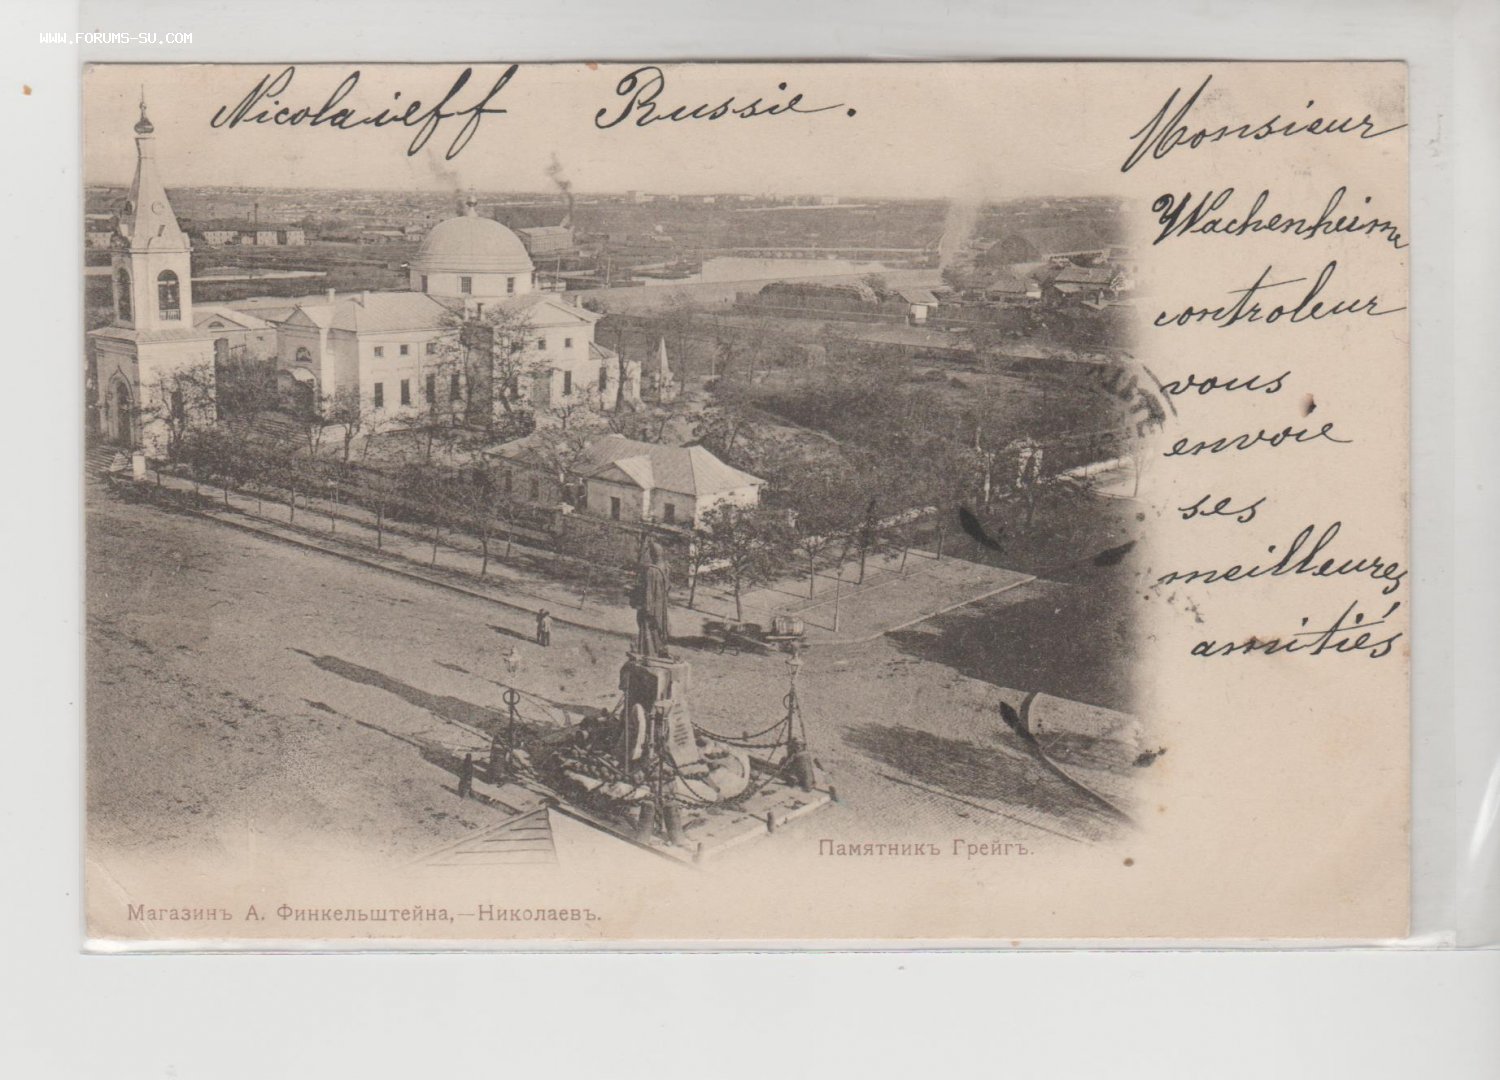 WWW.FORUMS-SU.COM
Nicolaieff Russie.
Monsieur
Wachenheim
controleur
vous
envoie
ses
meilleures
amitiés
Памятникъ Грейгъ.
Магазинъ А. Финкельштейна,—Николаевъ.